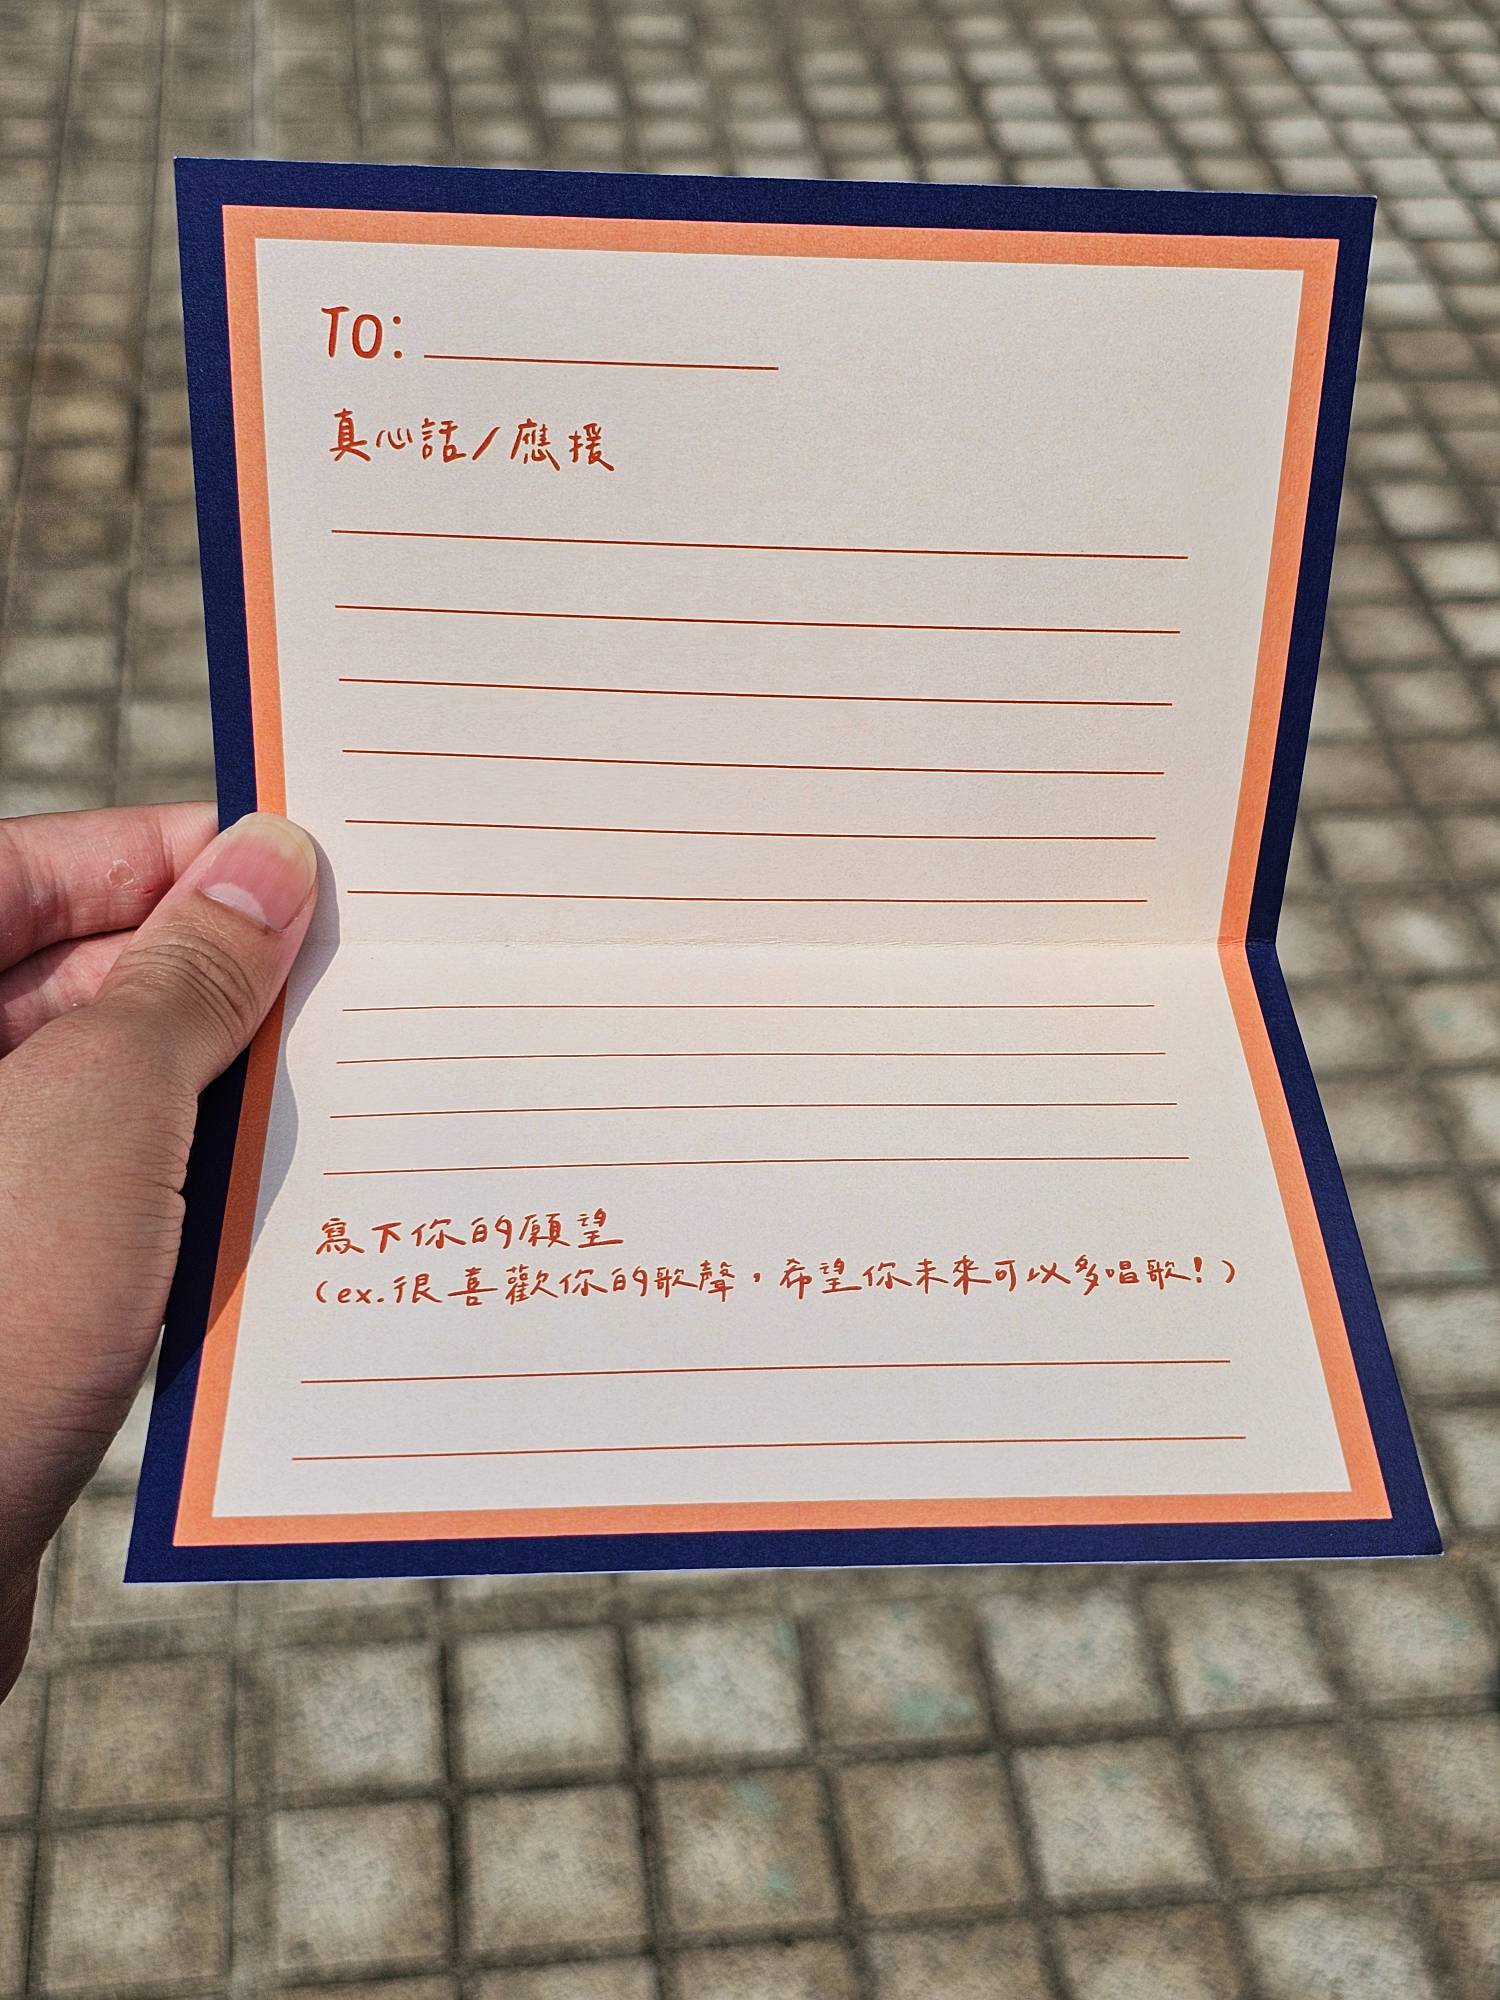 TO:
真心話/應援
寫下你的願望
(ex.很喜歡你的歌聲，希望你未來可以多唱歌!)